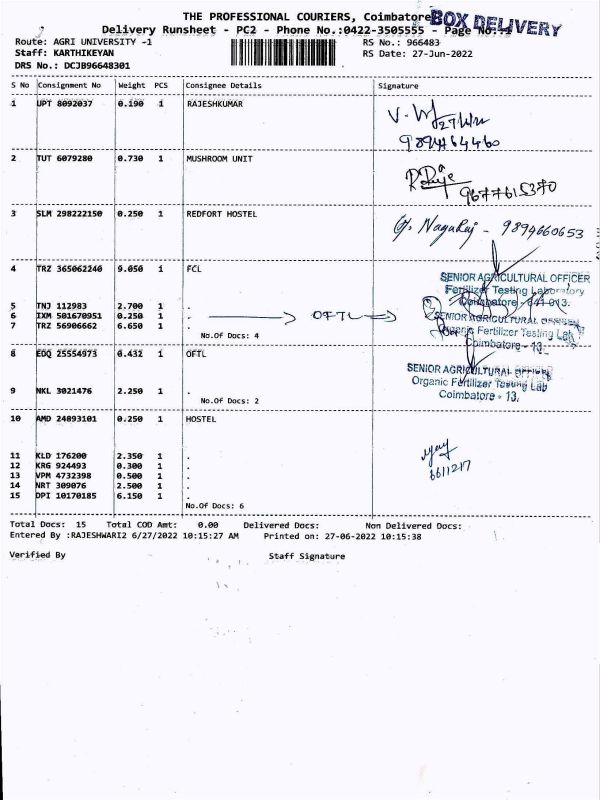 THE PROFESSIONAL COURIERS, Coimbatore
BOX DELIVERY
Delivery Runsheet - PC2 - Phone No.:0422-3505555 - Page No.:1
Route: AGRI UNIVERSITY -1
RS No.: 966483
Staff: KARTHIKEYAN
RS Date: 27-Jun-2022
DRS No.: DCJB96648301
S No Consignment No Weight PCS Consignee Details Signature
1 UPT 8092037 0.190 1 RAJESHKUMAR
2 TUT 6079280 0.730 1 MUSHROOM UNIT
9677615370
3 SLM 298222150 0.250 1 REDFORT HOSTEL
Nagaraj - 9894660653
4 TRZ 365062240 9.050 1 FCL
SENIOR AGRICULTURAL OFFICER
Fertilizer Testing Laboratory
Coimbatore - 641 013.
5 TNJ 112983 2.700 1 .
6 IXM 501670951 0.250 1 . OFTL
7 TRZ 56906662 6.650 1 .
No.Of Docs: 4
SENIOR AGRICULTURAL OFFICER
Organic Fertilizer Testing Lab
Coimbatore - 13.
8 EDQ 25554973 0.432 1 OFTL
SENIOR AGRICULTURAL OFFICER
Organic Fertilizer Testing Lab
Coimbatore - 13.
9 NKL 3021476 2.250 1 .
No.Of Docs: 2
10 AMD 24893101 0.250 1 HOSTEL
11 KLD 176200 2.350 1 .
12 KRG 924493 0.300 1 .
13 VPM 4732398 0.500 1 .
14 NRT 309076 2.500 1 .
15 DPI 10170185 6.150 1 .
No.Of Docs: 6
6611217
Total Docs: 15 Total COD Amt: 0.00 Delivered Docs: Non Delivered Docs:
Entered By :RAJESHWARI2 6/27/2022 10:15:27 AM Printed on: 27-06-2022 10:15:38
Verified By Staff Signature